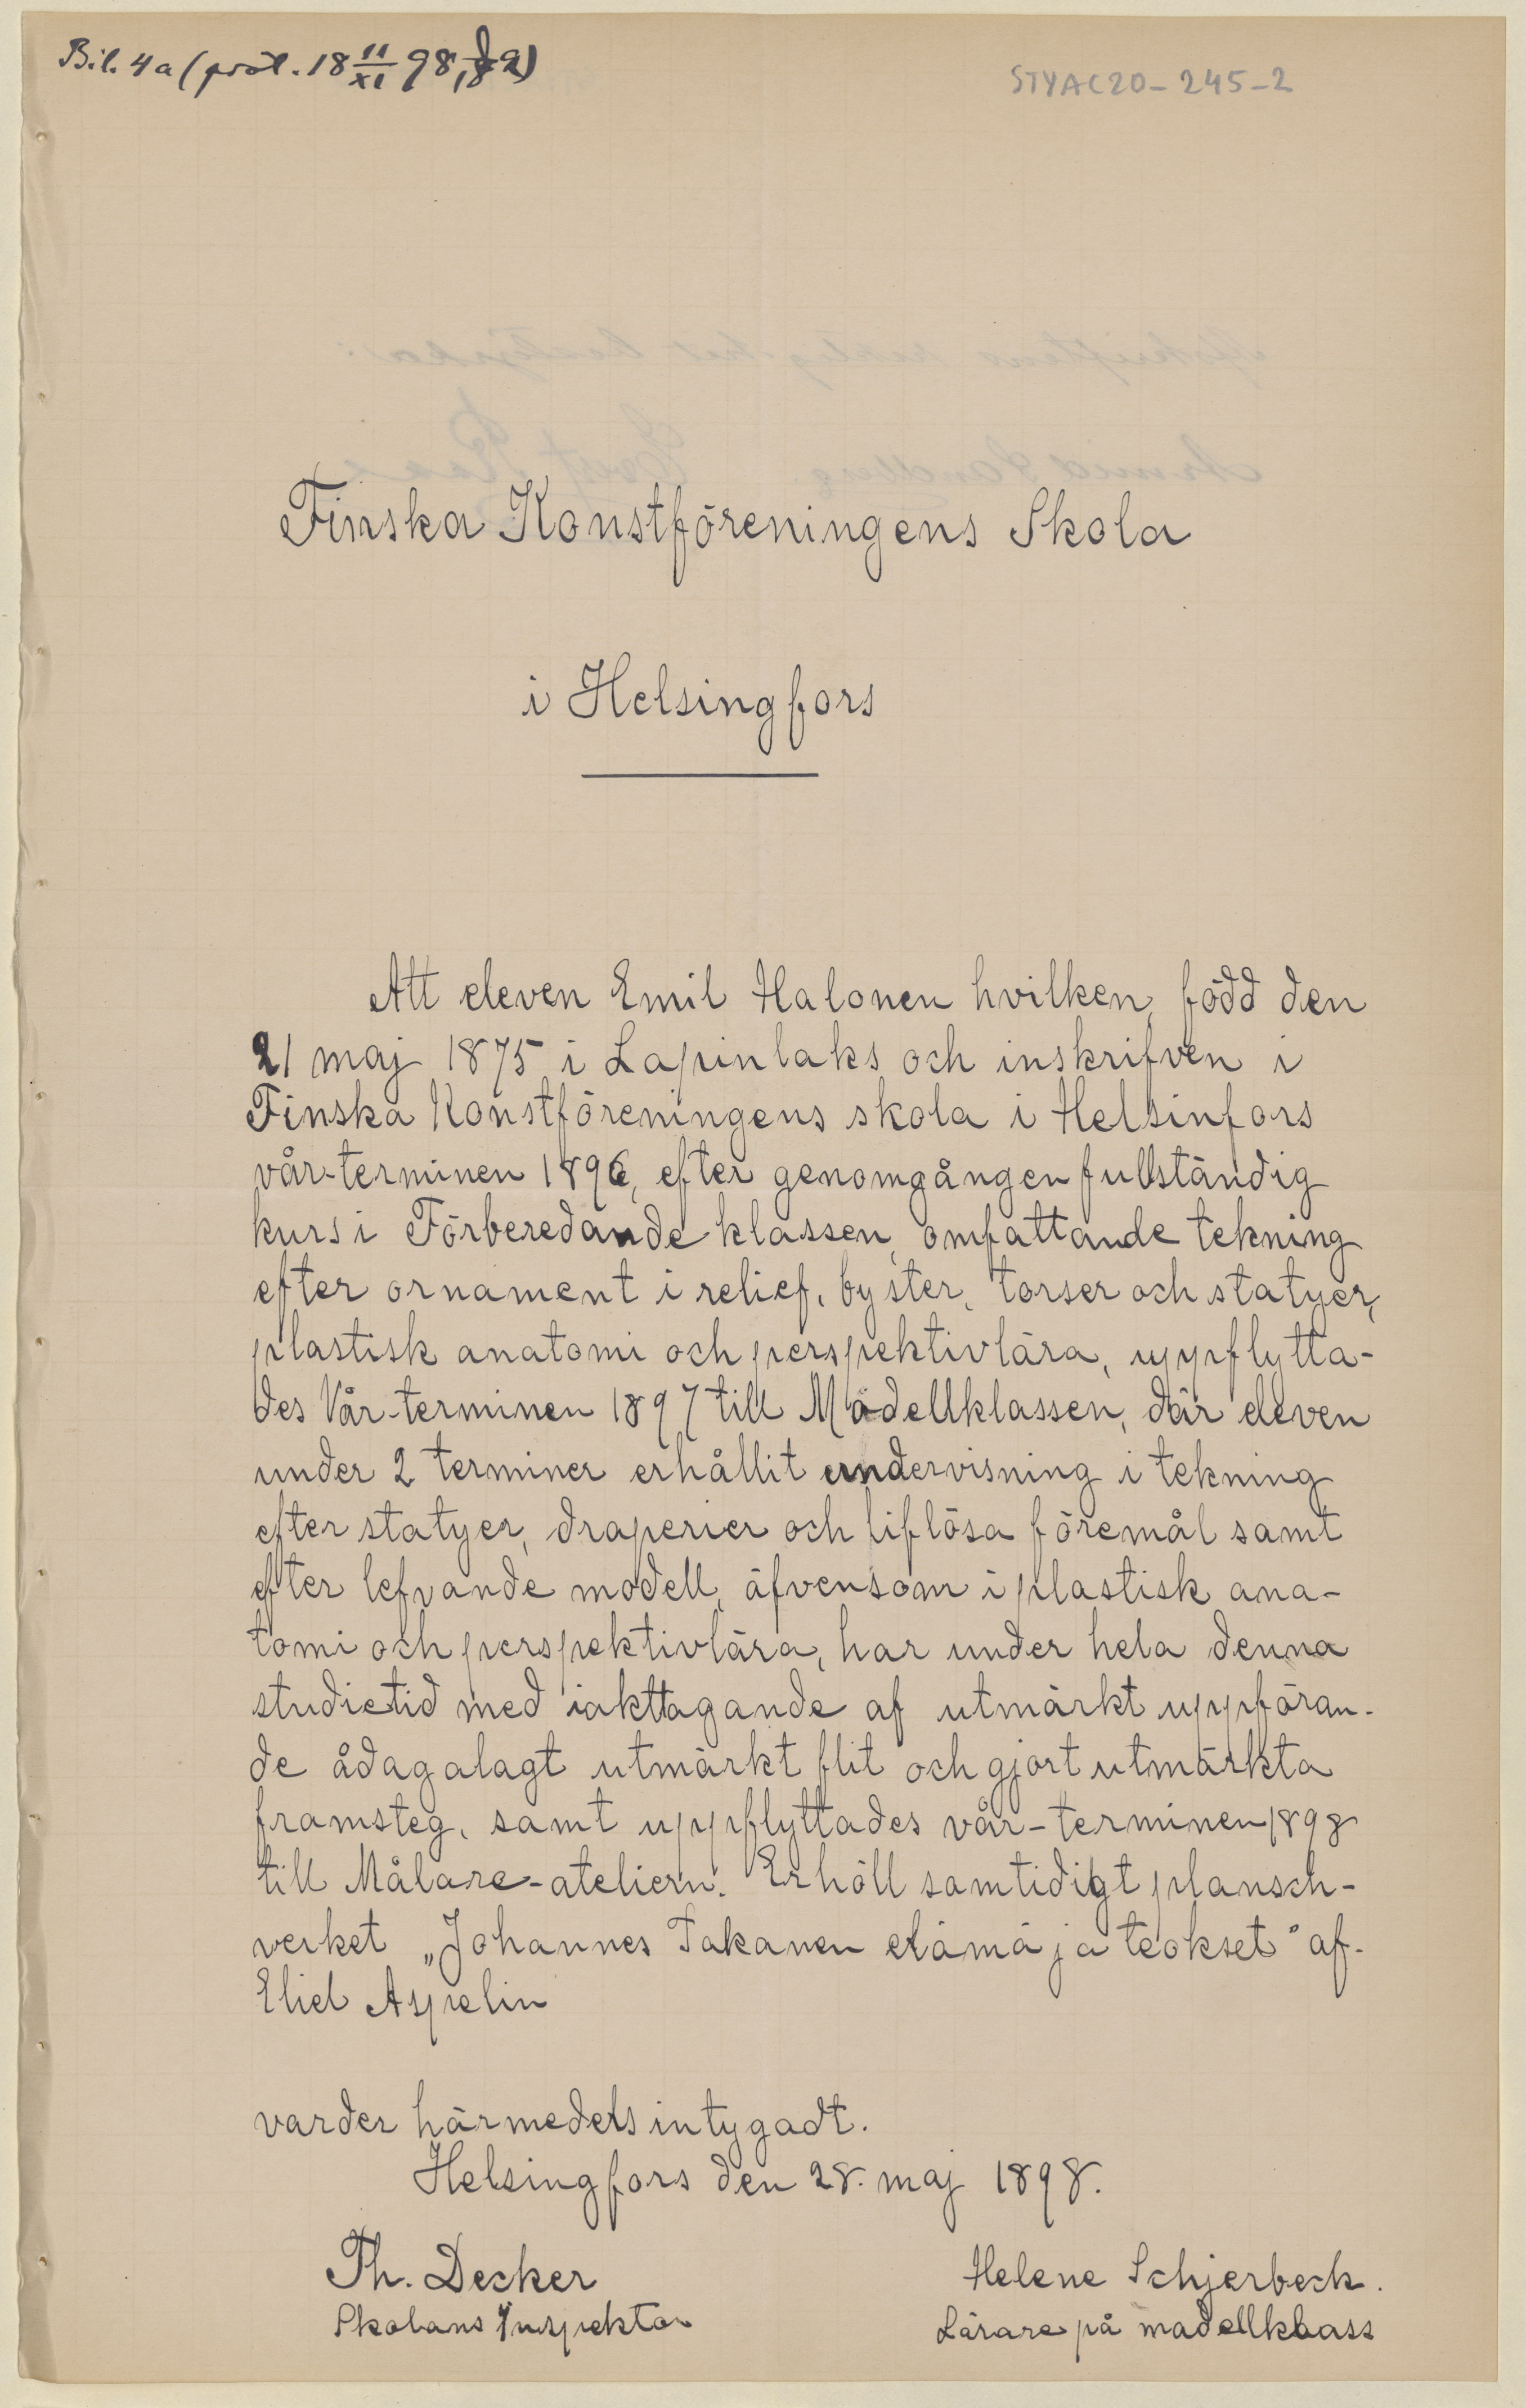 Bil. 4a (prot. 18 11/XI 98, § 2)
STYAC20-245-2
Finska Konstföreningens Skola
i Helsingfors
Att eleven Emil Halonen hvilken, född den
21 maj 1875 i Lapinlaks och inskrifven i
Finska Konstföreningens skola i Helsinfors
vår-terminen 1896, efter genomgången fullständig
kurs i Förberedande klassen, omfattande tekning
efter ornament i relief, byster, torser och statyer,
plastisk anatomi och perspektivlära, uppflytta-
des Vår-terminen 1897 till Modellklassen, där eleven
under 2 terminer erhållit undervisning i tekning
efter statyer, draperier och liflösa föremål samt
efter lefvande modell, äfvensom i plastisk ana-
tomi och perspektivlära, har under hela denna
studietid med iakttagande af utmärkt uppföran-
de ådagalagt utmärkt flit och gjort utmärkta
framsteg, samt uppflyttades vår-terminen 1898
till Målare-ateliern. Erhöll samtidigt plansch-
verket „Johannes Takanen elämä ja teokset" af
Eliel Aspelin
varder härmedels intygadt.
Helsingfors den 28. maj 1898.
Th. Decker
Helene Schjerbeck.
Skolans Inspektor
Lärare på modellklass